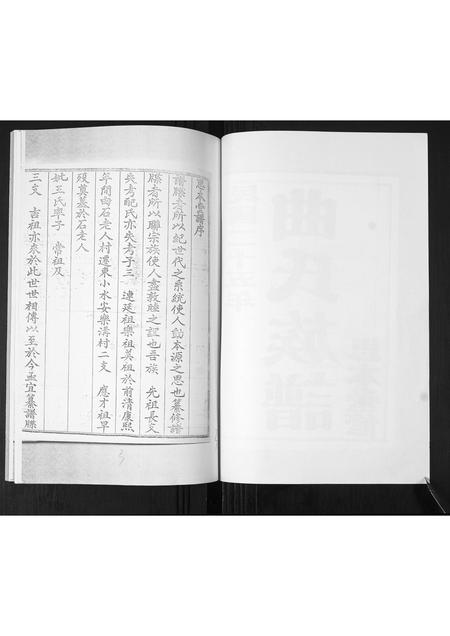 思本堂譜序
譜牒者所以紀世代之系統使人動本源之思也纂修譜
牒者所以聯宗族使人盡敦睦之誼也吾族 先祖長文
失考配氏亦失考子三 連廷祖樂祖英祖於前清康熙
年間由石老人村遷東小水安樂溝村二支 應才祖早
歿莫墓於石老人
妣王氏率子 常祖及
三支 吉祖亦來於此世世相傳以至於今孟宜纂譜牒
3